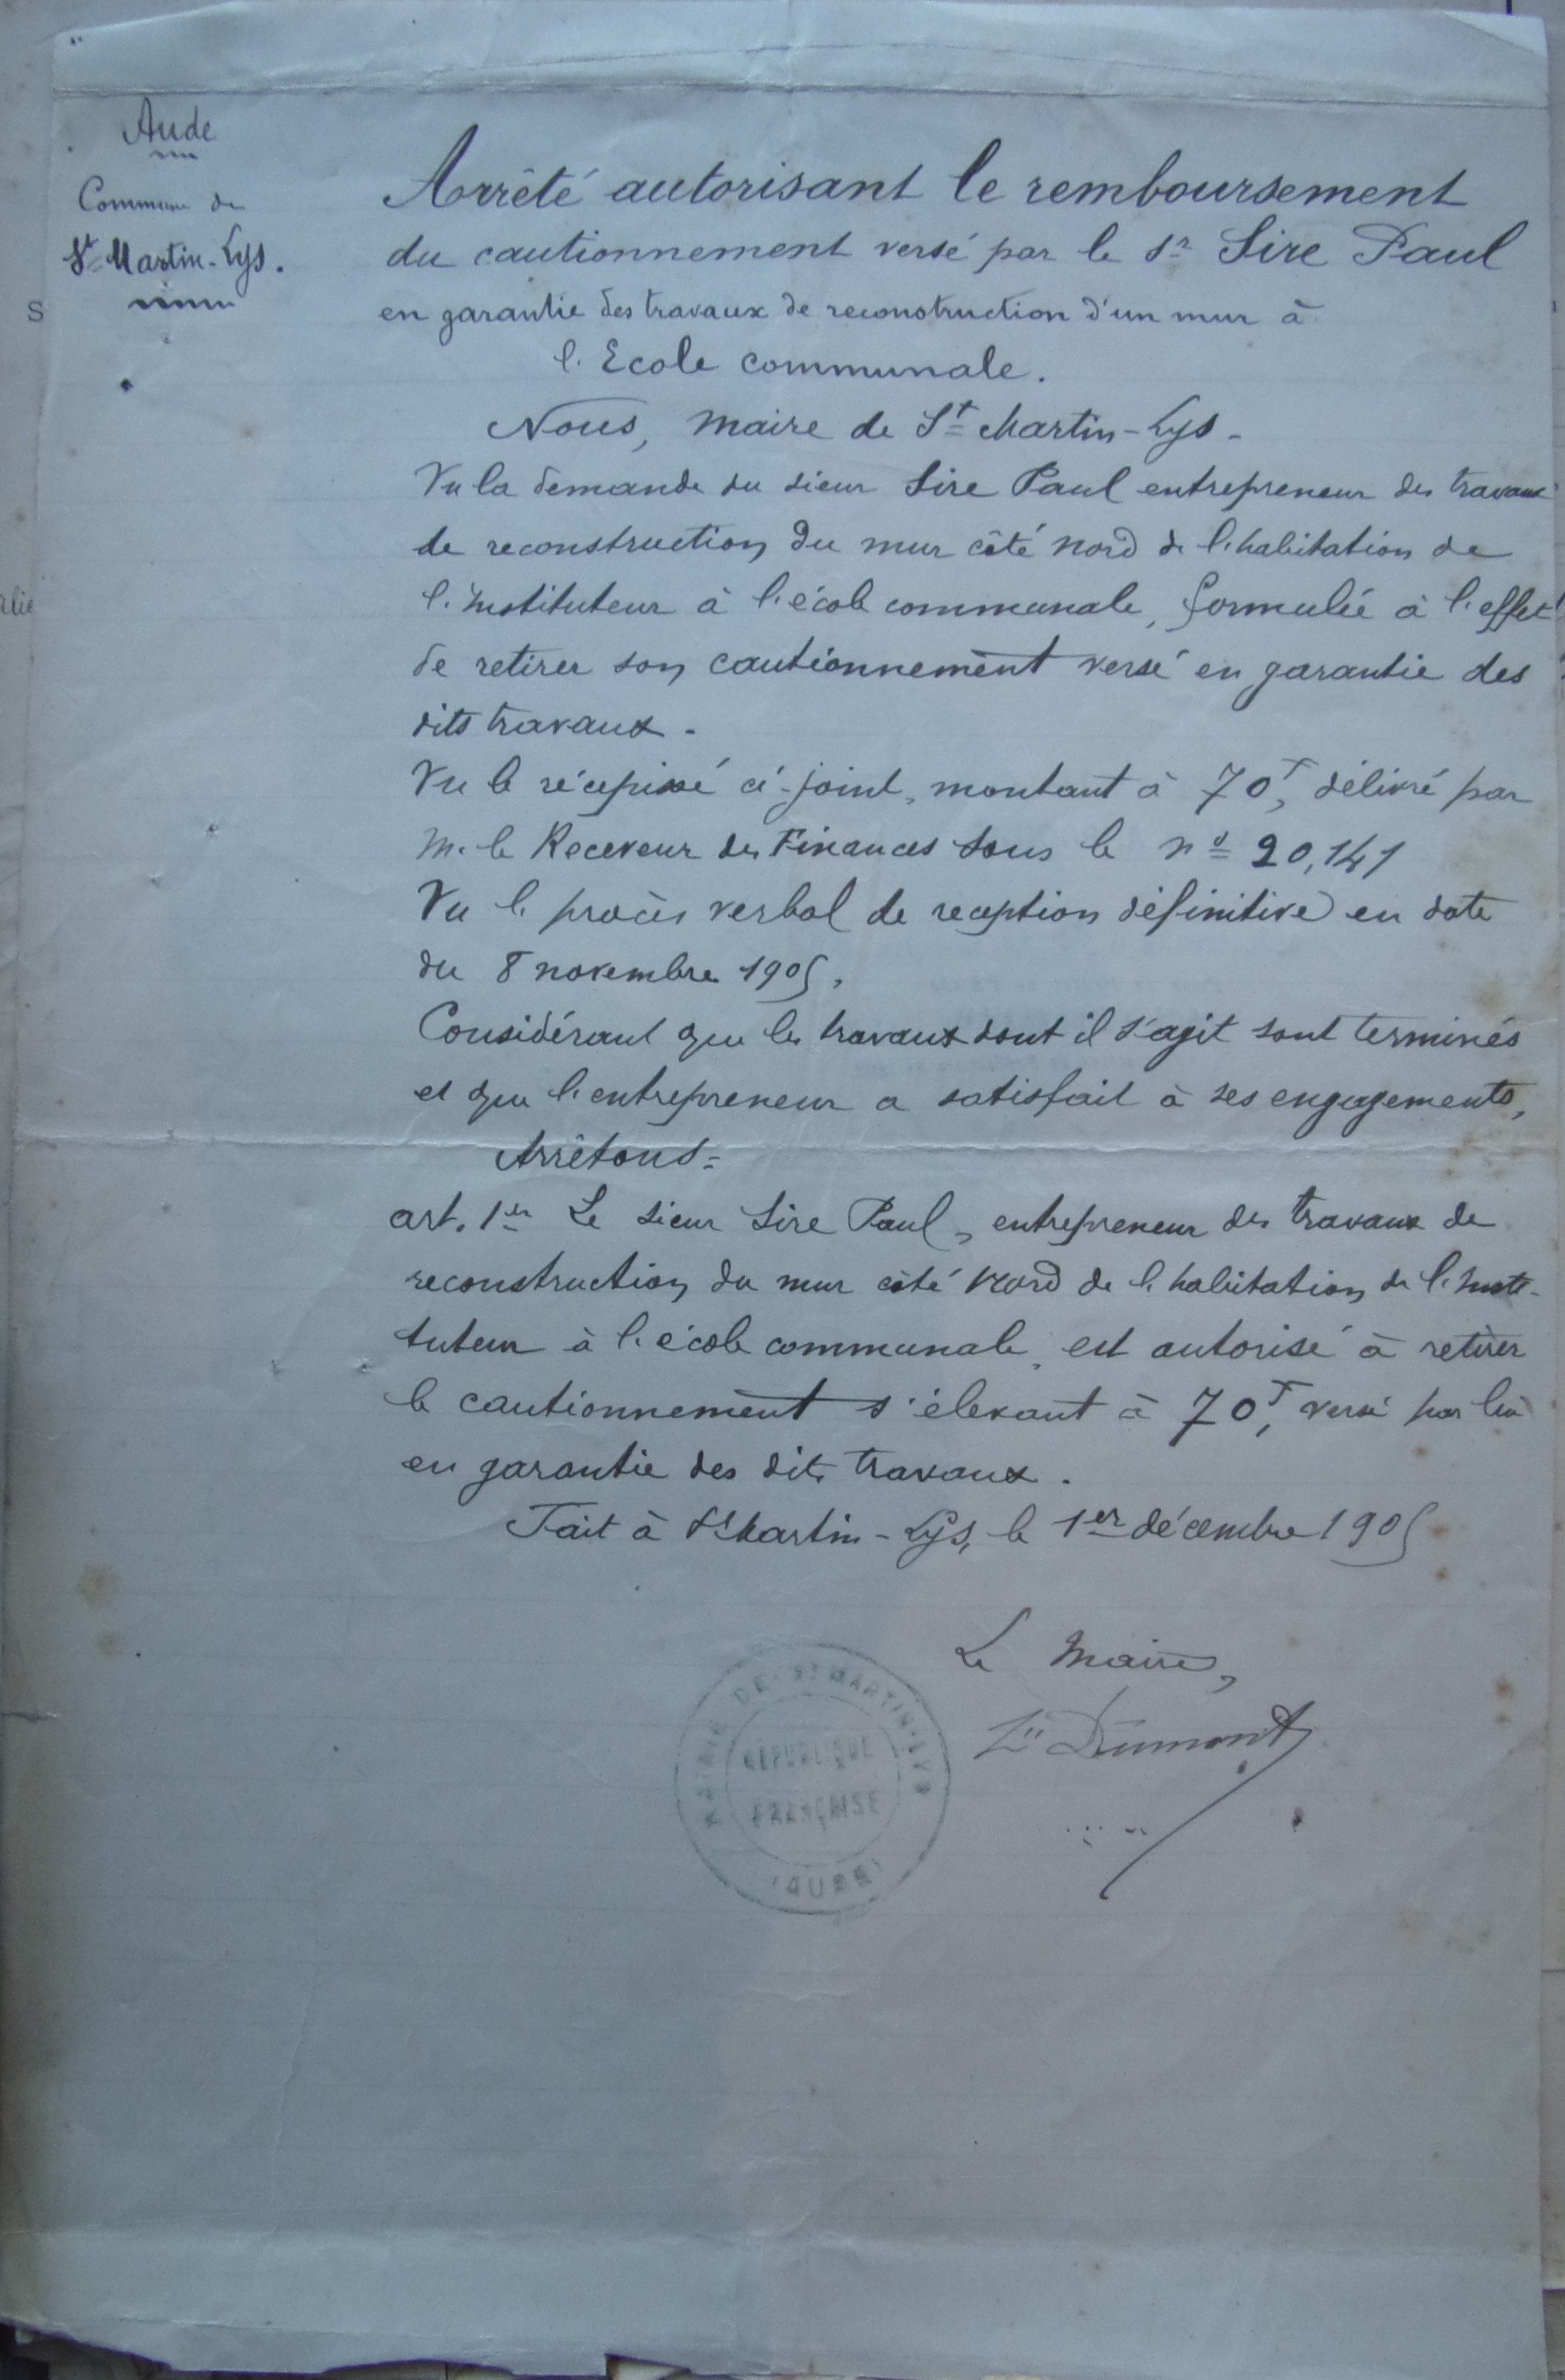 Aude
Commune de
St Martin-Lys.
Arrêté autorisant le remboursement
du cautionnement versé par le Sr Sire Paul
en garantie des travaux de reconstruction d'un mur à
l'Ecole communale.
Nous, Maire de St Martin-Lys-
Vu la demande du sieur Sire Paul entrepreneur des travaux
de reconstruction du mur côté nord de l'habitation de
l'Instituteur à l'école communale, formulée à l'effet
de retirer son cautionnement versé en garantie des
dits travaux.
Vu le récépissé ci-joint, montant à 70f, délivré par
M. le Receveur des Finances sous le no 20,141
Vu le procès verbal de reception définitive en date
du 8 novembre 1905,
Considérant que les travaux dont il s'agit sont terminés
et que l'entrepreneur a satisfait à ses engagements,
Arrêtons=
art. 1er Le sieur Sire Paul, entrepreneur des travaux de
reconstruction du mur côté Nord de l'habitation de l'Insti-
tuteur à l'école communale, est autorisé à retirer
le cautionnement s'élevant à 70f, versé par lui
en garantie des dits travaux.
Fait à St Martin-Lys, le 1er décembre 1905
Le Maire,
Dumont
MAIRIE DE ST MARTIN-LYS
RÉPUBLIQUE
FRANÇAISE
(AUDE)